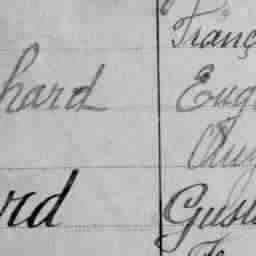 Franç
hard Eug
Aug
rd Gust